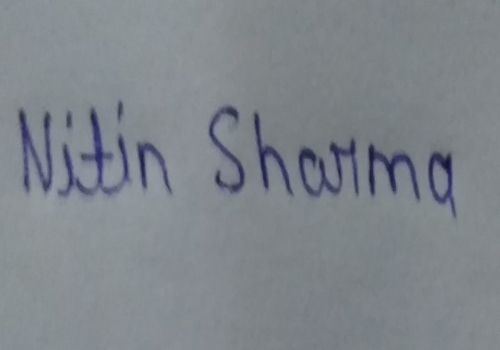 Nitin Sharma